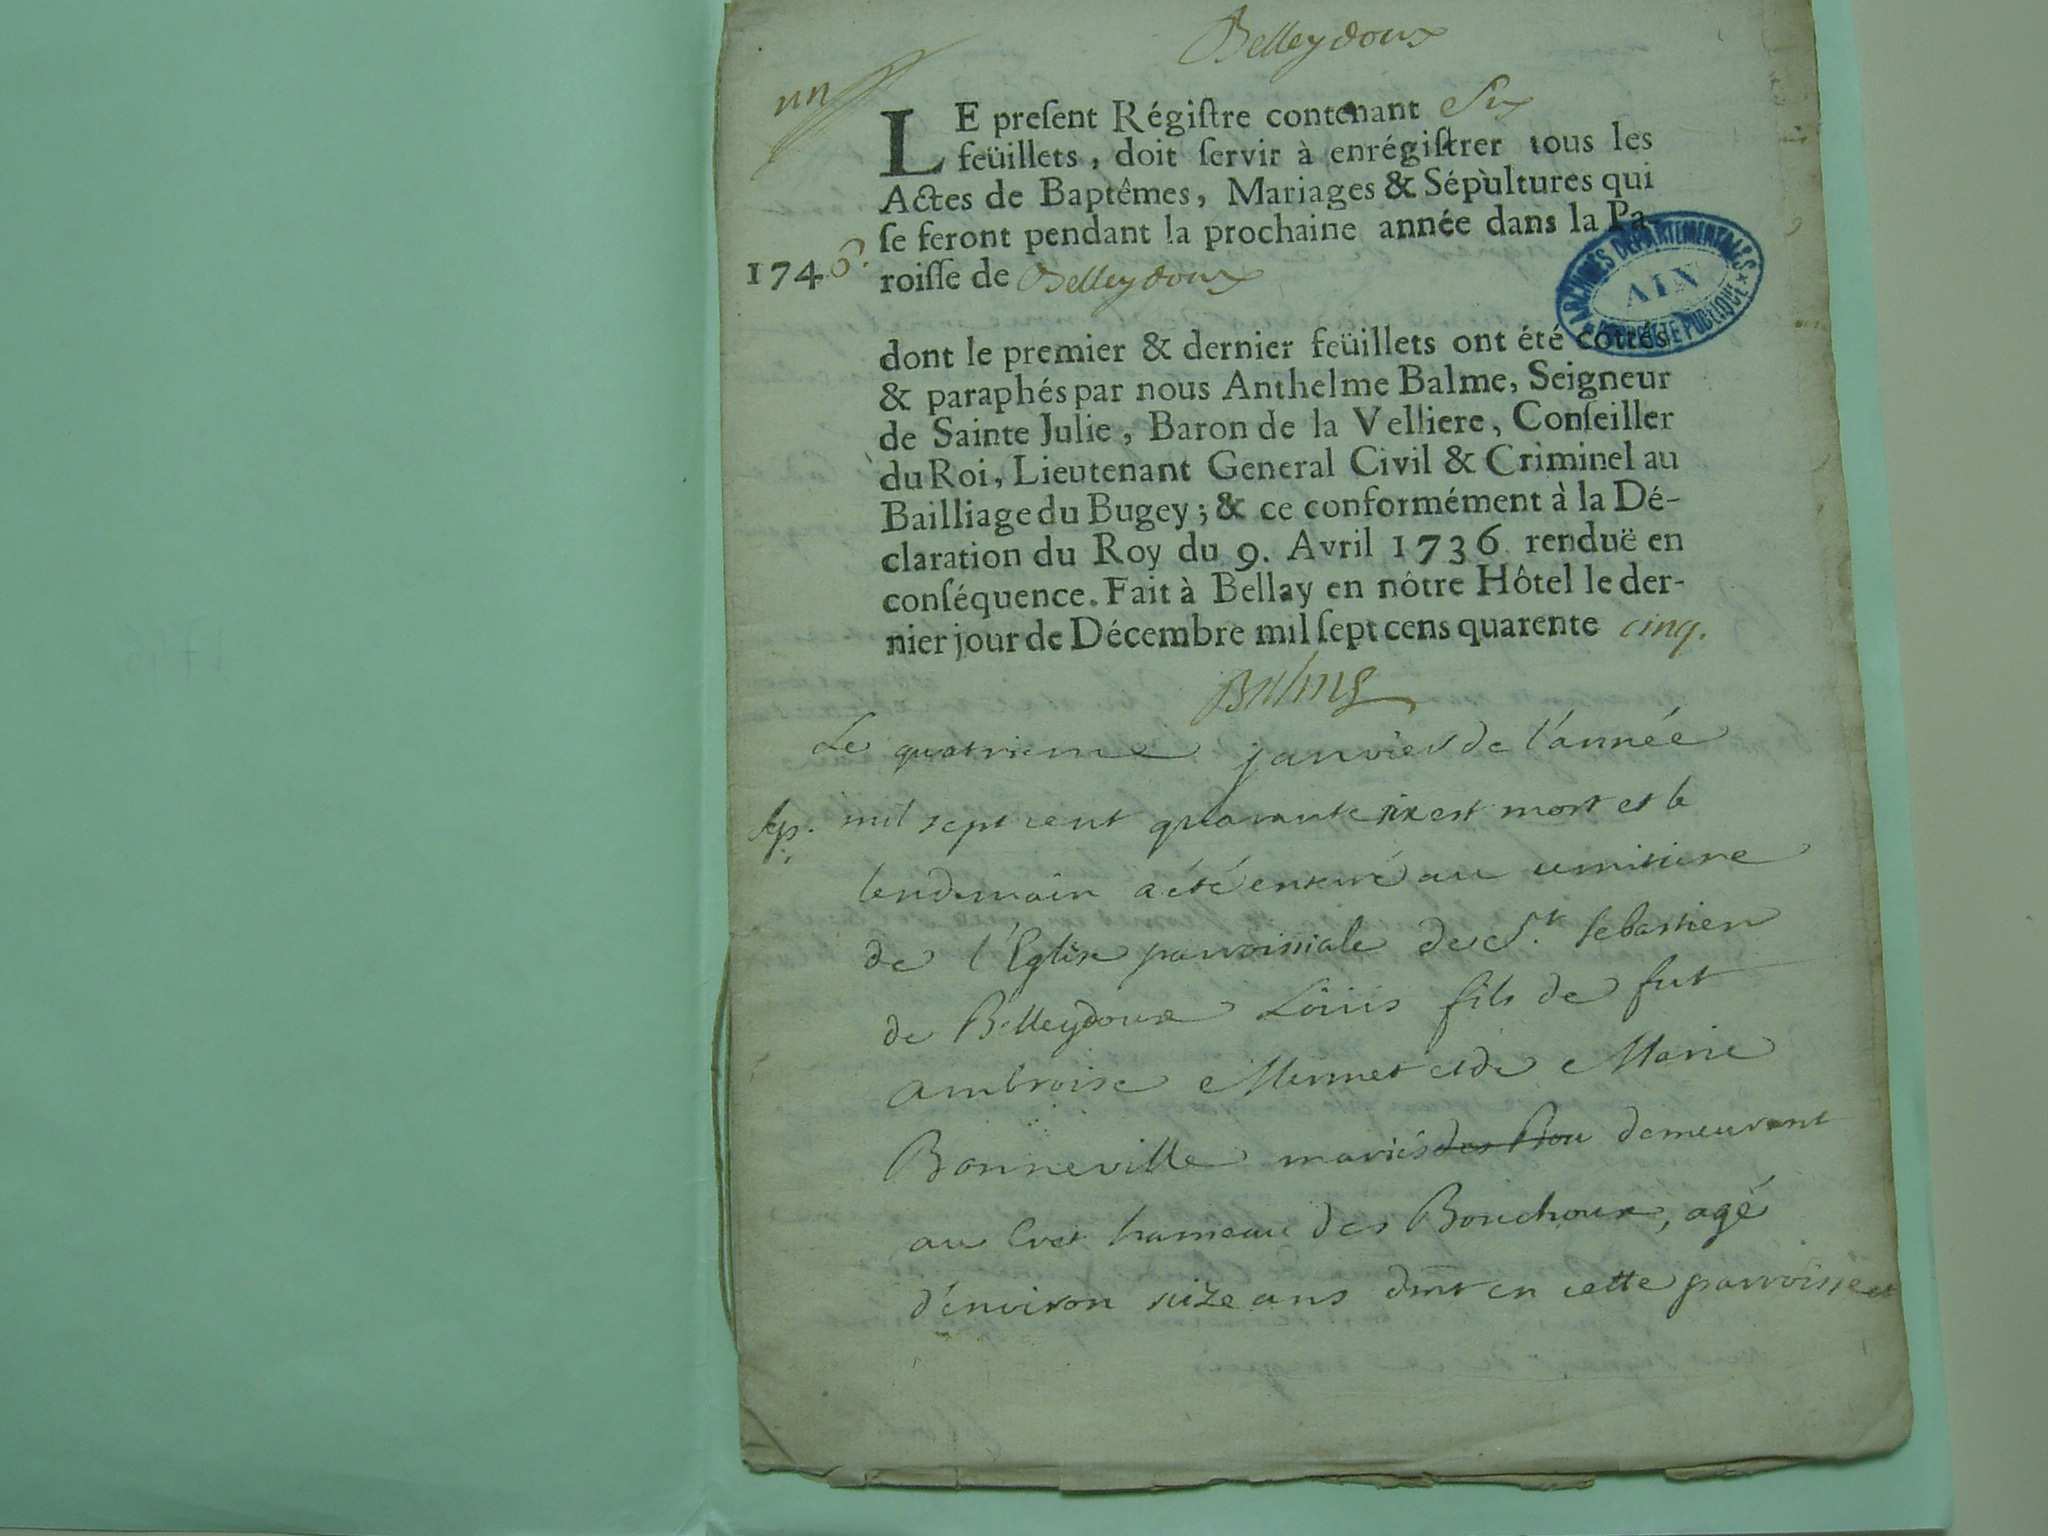 Belleydoux
un
LE preſent Régiſtre contenant Six
feüillets, doit ſervir à enrégiſtrer tous les
Actes de Baptêmes, Mariages & Sépultures qui
ſe feront pendant la prochaine année dans la Pa
1746. roiſſe de Belleydoux
ARCHIVES DÉPARTEMENTALES
AIN
PROPRIÉTÉ PUBLIQUE
dont le premier & dernier feüillets ont été cottés
& paraphés par nous Anthelme Balme, Seigneur
de Sainte Julie, Baron de la Velliere, Conſeiller
du Roi, Lieutenant General Civil & Criminel au
Bailliage du Bugey; & ce conformément à la Dé-
claration du Roy du 9. Avril 1736. renduë en
conſéquence. Fait à Bellay en nôtre Hôtel le der-
nier jour de Décembre mil ſept cens quarente cinq.
Balme
Le quatrieme janvier de l'année
sep. mil sept cent quarante six est mort et le
lendemain a été enterré au cimitiere
de l'Eglise parroissiale de St. Sebastien
de Belleydoux Loüis fils de fut
ambroise Mermet et de Marie
Bonneville mariés demeurant
au Cret hameau des Bouchoux, agé
d'environ seize ans dmt en cette parroisse et